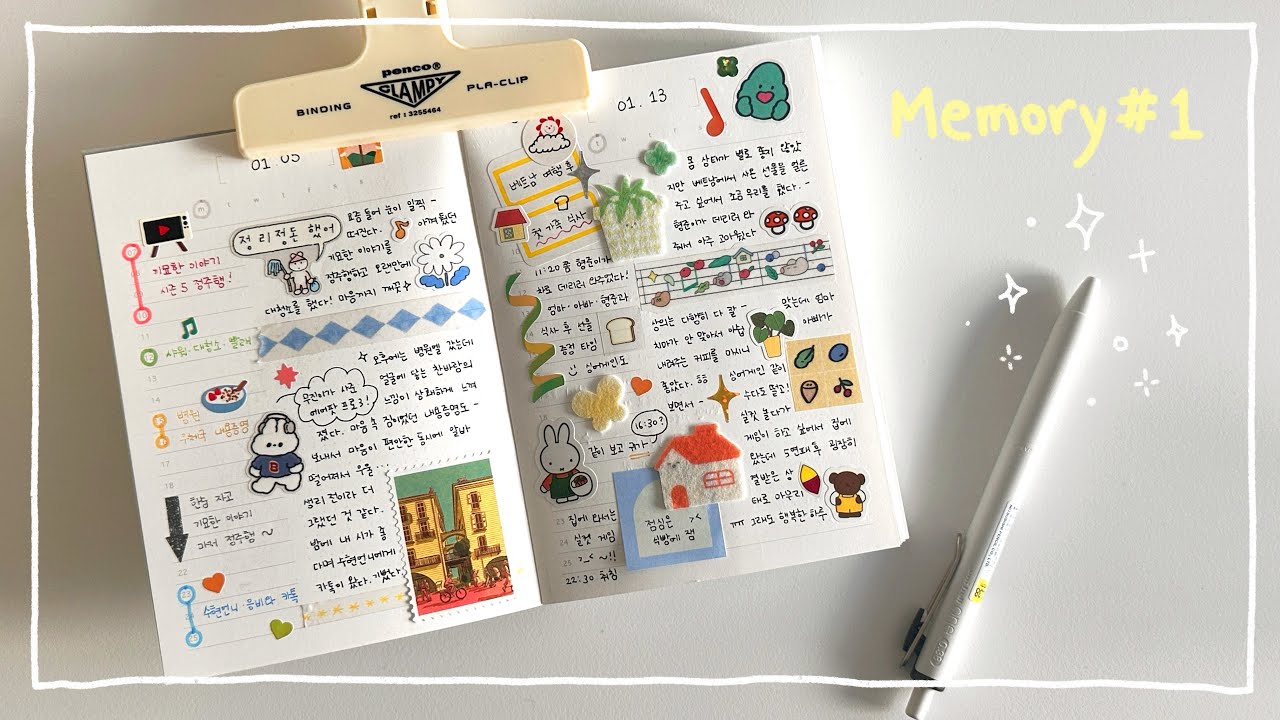 Memory#1
penco®
CLAMPY
BINDING
PLA-CLIP
ref : 3255464
01 05
m t w t f s
정리정돈 했어
요즘 들어 눈이 일찍 -
떠진다. 아껴뒀던
기묘한 이야기를
정주행하고 오랜만에
대청소를 했다! 마음까지 개운
기묘한 이야기
시즌 5 정주행!
샤워·대청소·빨래
13
14
병원
우체국 내용증명
17
18
한숨 자고
기묘한 이야기
마저 정주행 ~
22
수현언니·움비다 카톡
오후에는 병원엘 갔는데
얼굴에 닿는 찬바람의
느낌이 상쾌하게 느껴
졌다. 마음속 짐이었던 내용증명도 -
보내서 마음이 편안한 동시에 알바
떨어져서 우울
생리 전이라 더
그랬던 것 같다.
밤에 내 시가 좋
다며 수현언니에게
카톡이 왔다. 기뻤다.
무진이가 사준
에어팟 프로3!
B
01. 13
베트남 여행 후
첫 가족 식사
몸 상태가 별로 좋지 않았
지만 베트남에서 사온 선물을 얼른
주고 싶어서 조금 무리를 했다. -
형준이가 데리러 와
줘서 아주 고마웠다
11:20쯤 형준이가
차로 데리러 와주었다!
엄마·아빠·형준과
식사 후 선물
증정 타임
싱어게인도
16:30?
같이 보고 귀가
23 집에 와서는
24 실컷 게임
25 >_< ~!!
22:30 취침
상의는 다행히 다 잘 - 맞는데 엄마
치마가 안 맞아서 아쉽 아빠가
내려주는 커피를 마시니
좋았다. 싱어게인 같이
보면서 - 수다도 떨고!
실컷 놀다가
게임이 하고 싶어서 집에
왔는데 5연패 후 굉장히
열받은 상
태로 마무리
ㅠㅠ 그래도 행복한 하루
점심은 ><
식방에 잼